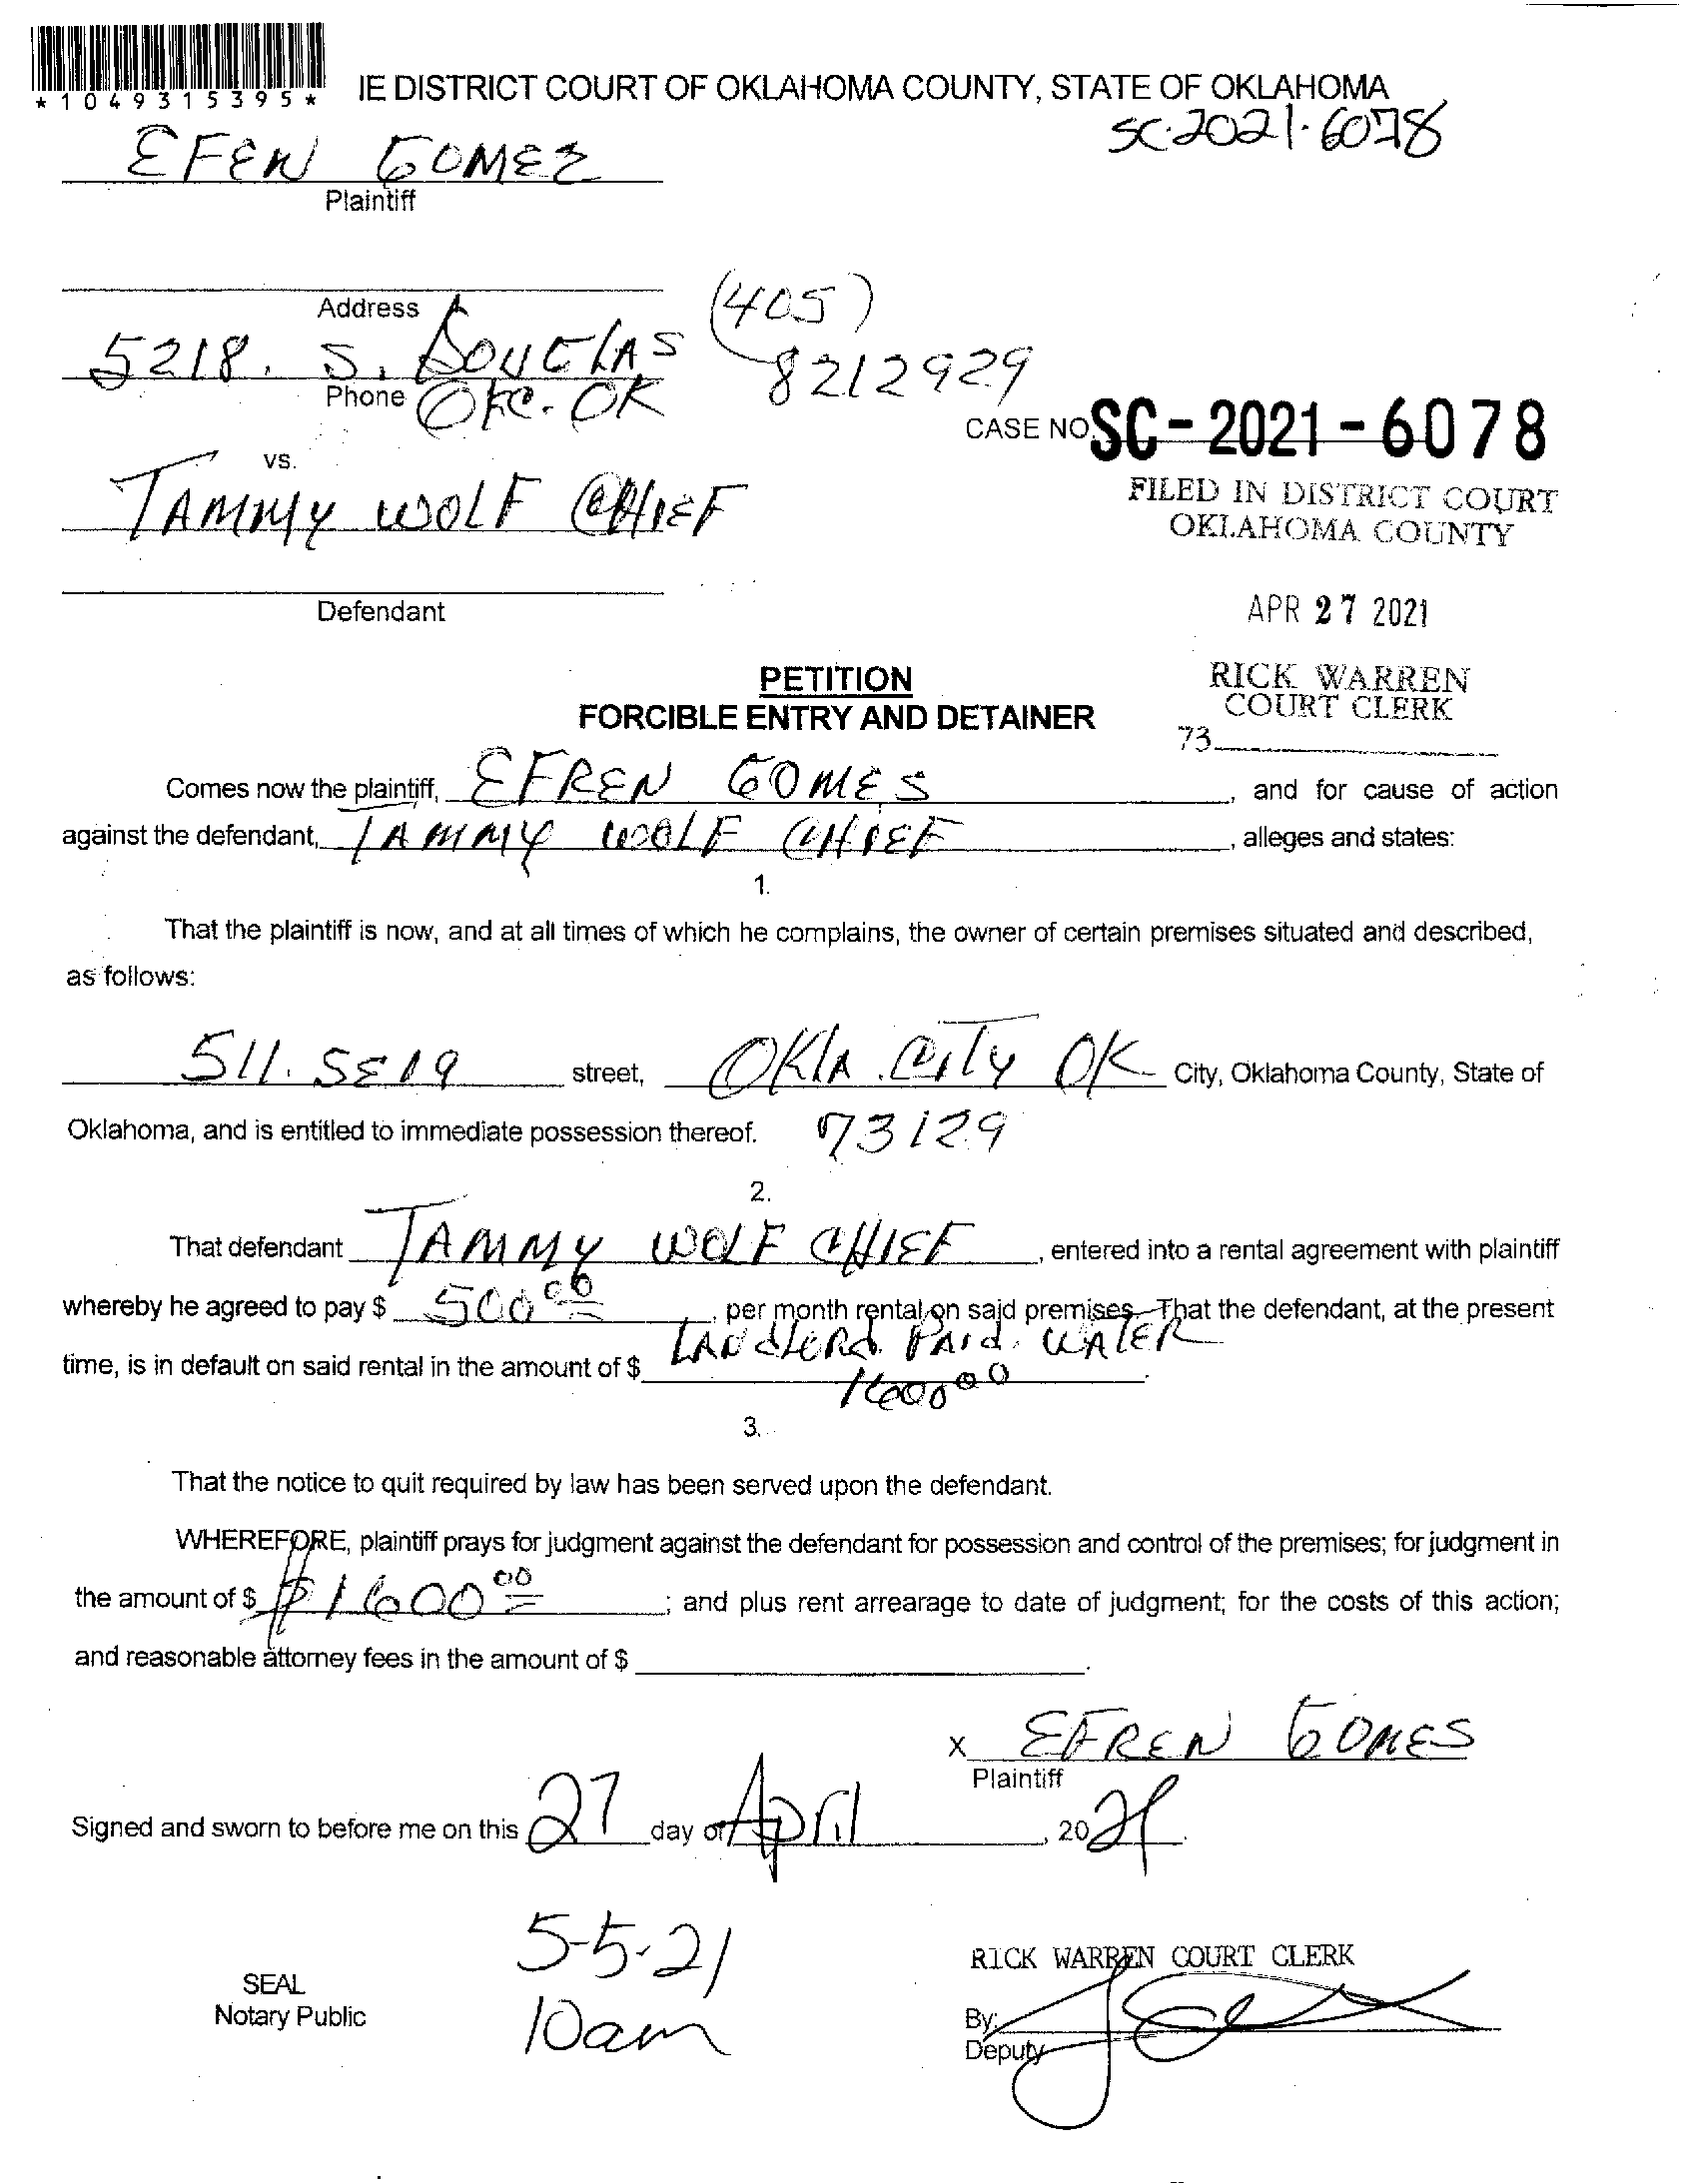 *1049315395*
IE DISTRICT COURT OF OKLAHOMA COUNTY, STATE OF OKLAHOMA
SC-2021-6078
EFEN GOMEZ
Plaintiff
Address
(405)
5218. S. DOUGLAS
8212929
Phone
OKC. OK
CASE NO SC-2021-6078
vs.
FILED IN DISTRICT COURT
OKLAHOMA COUNTY
TAMMY WOLF CHIEF
Defendant
APR 27 2021
PETITION
RICK WARREN
COURT CLERK
FORCIBLE ENTRY AND DETAINER
73
Comes now the plaintiff, EFREN GOMES, and for cause of action
against the defendant, TAMMY WOLF CHIEF, alleges and states:
1.
That the plaintiff is now, and at all times of which he complains, the owner of certain premises situated and described,
as follows:
511. SE 19 street, OKLA. CITY OK City, Oklahoma County, State of
Oklahoma, and is entitled to immediate possession thereof. 73129
2.
That defendant TAMMY WOLF CHIEF, entered into a rental agreement with plaintiff
whereby he agreed to pay $ 500.00, per month rental on said premises. That the defendant, at the present
LANDLORD PAID. WATER
time, is in default on said rental in the amount of $ 1600 00.
3.
That the notice to quit required by law has been served upon the defendant.
WHEREFORE, plaintiff prays for judgment against the defendant for possession and control of the premises; for judgment in
the amount of $ $1600 00; and plus rent arrearage to date of judgment; for the costs of this action;
and reasonable attorney fees in the amount of $ .
X EFREN GOMES
Plaintiff
Signed and sworn to before me on this 27 day of April, 2021.
5-5-21
10am
SEAL
Notary Public
RICK WARREN COURT CLERK
By:
Deputy